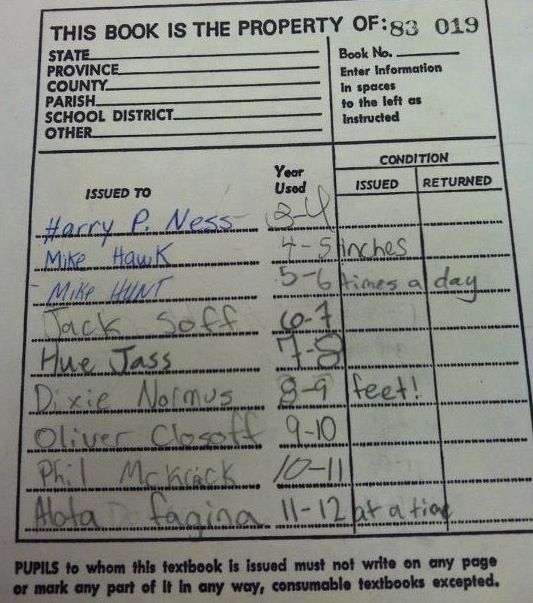 THIS BOOK IS THE PROPERTY OF: 83 019
STATE
PROVINCE
COUNTY
PARISH
SCHOOL DISTRICT
OTHER
Book No.
Enter information
in spaces
to the left as
instructed
ISSUED TO
Year
Used
CONDITION
ISSUED RETURNED
Harry P. Ness 3-4
Mike Hawk 4-5 inches
Mike HUNT 5-6 times a day
Jack Soff 6-7
Hue Jass 7-8
Dixie Normus 8-9 feet!
Oliver Closoff 9-10
Phil McKrack 10-11
Alota fagina 11-12 at a time
PUPILS to whom this textbook is issued must not write on any page
or mark any part of it in any way, consumable textbooks excepted.